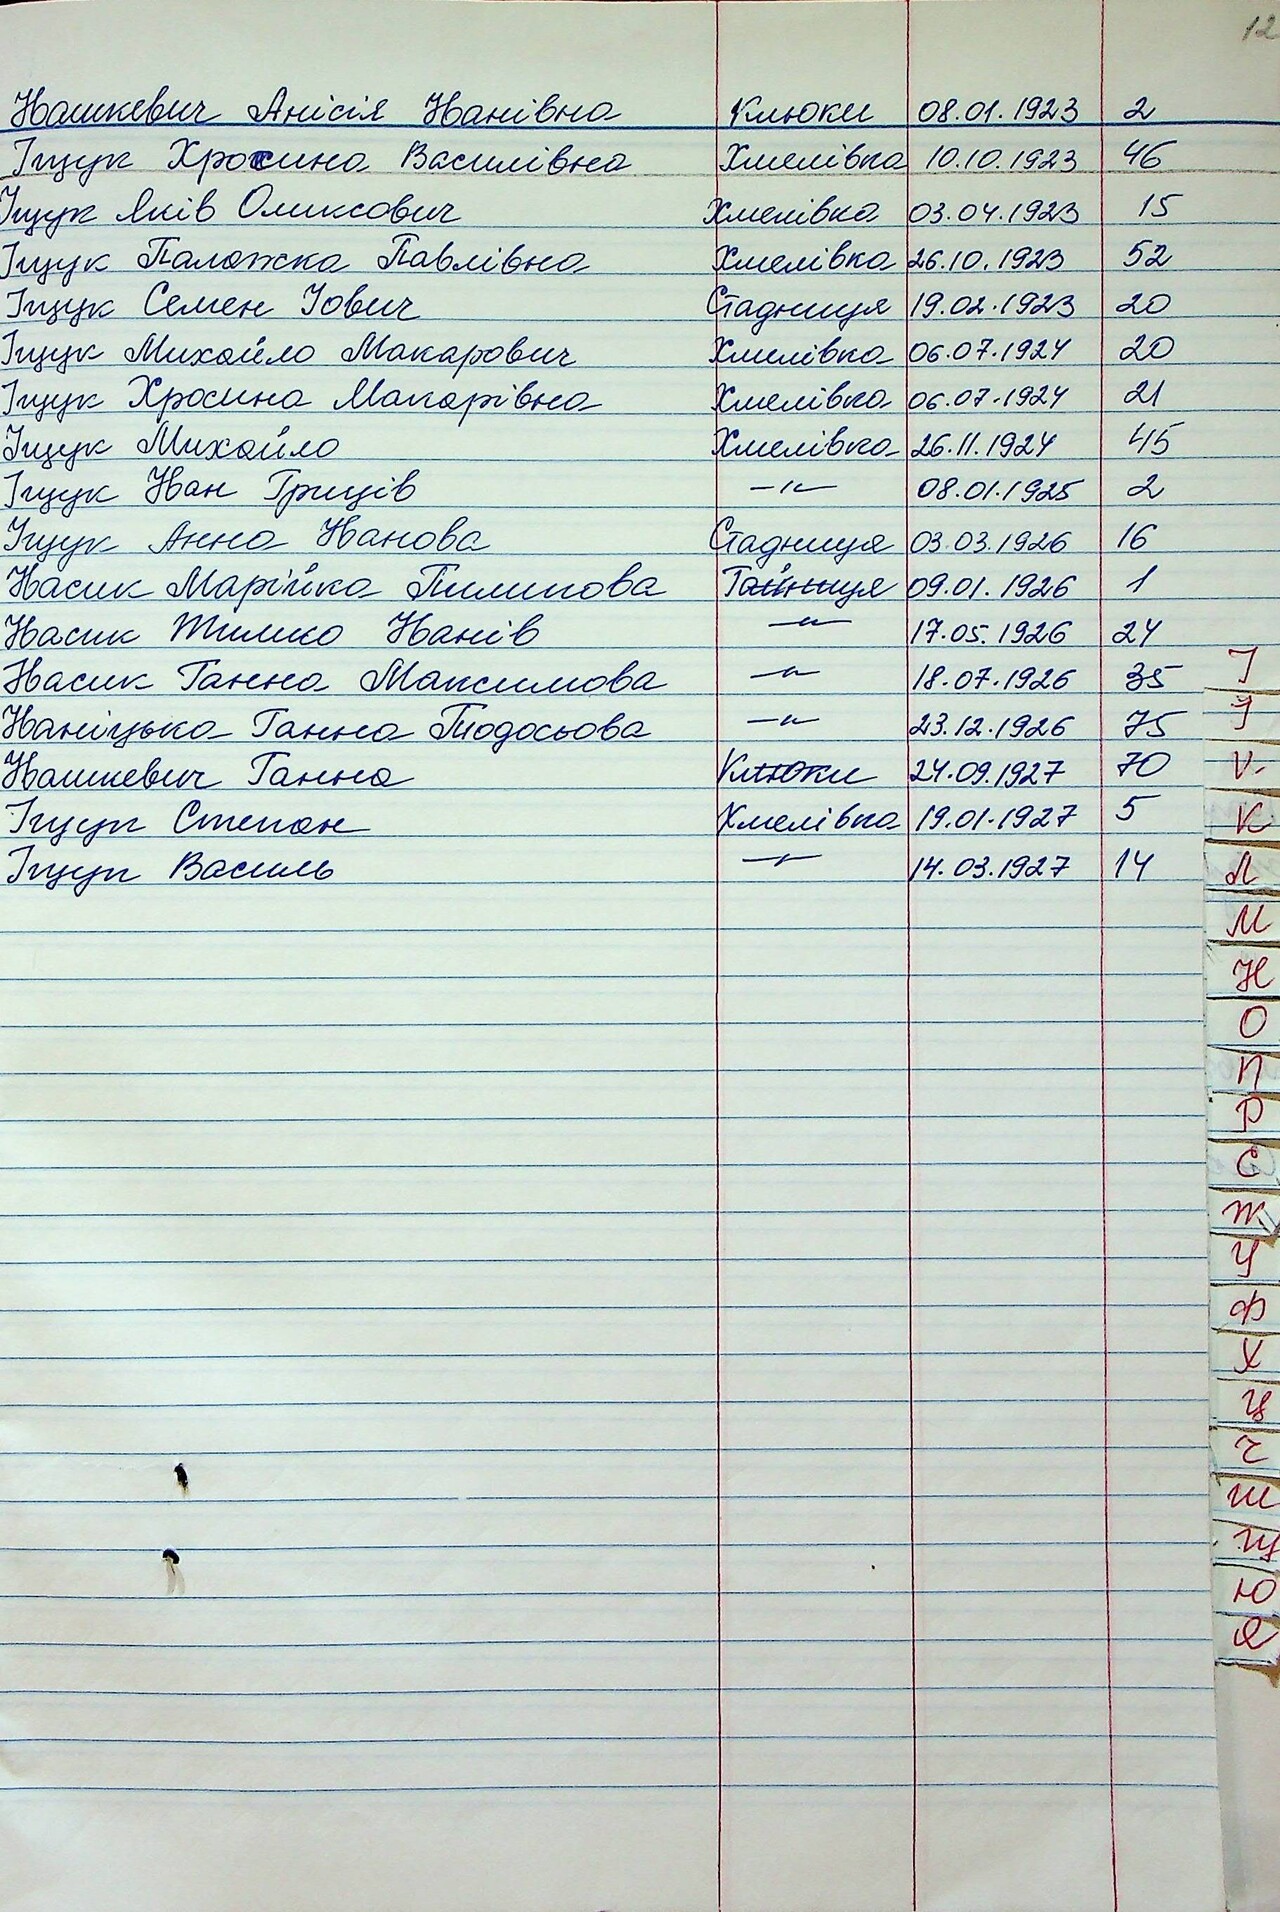 12
Івашкевич Анісія Іванівна Клюки 08.01.1923 2
Іщук Хросина Василівна Хмелівка 10.10.1923 46
Іщук Яків Оликсович Хмелівка 03.04.1923 15
Іщук Палажка Павлівна Хмелівка 26.10.1923 52
Іщук Семен Іович Стадниця 19.02.1923 20
Іщук Михайло Макарович Хмелівка 06.07.1924 20
Іщук Хросина Макарівна Хмелівка 06.07.1924 21
Іщук Михайло Хмелівка 26.11.1924 45
Іщук Іван Гриців —"— 08.01.1925 2
Іщук Анна Іванова Стадниця 03.03.1926 16
Івасик Марійка Пилипова 09.01.1926 1
Івасик Тимко Іванів —"— 17.05.1926 24
Івасик Ганна Максимова —"— 18.07.1926 35
Іваніцька Ганна Тодосьова —"— 23.12.1926 75
Івашкевич Ганна Клюки 24.09.1927 70
Іщук Степан Хмелівка 19.01.1927 5
Іщук Василь —"— 14.03.1927 14
І
Ї
К
Л
М
Н
О
П
Р
С
Т
У
Ф
Х
Ц
Ч
Ш
Щ
Ю
Я